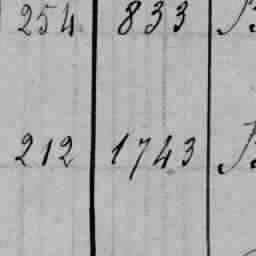 254 833
212 1743